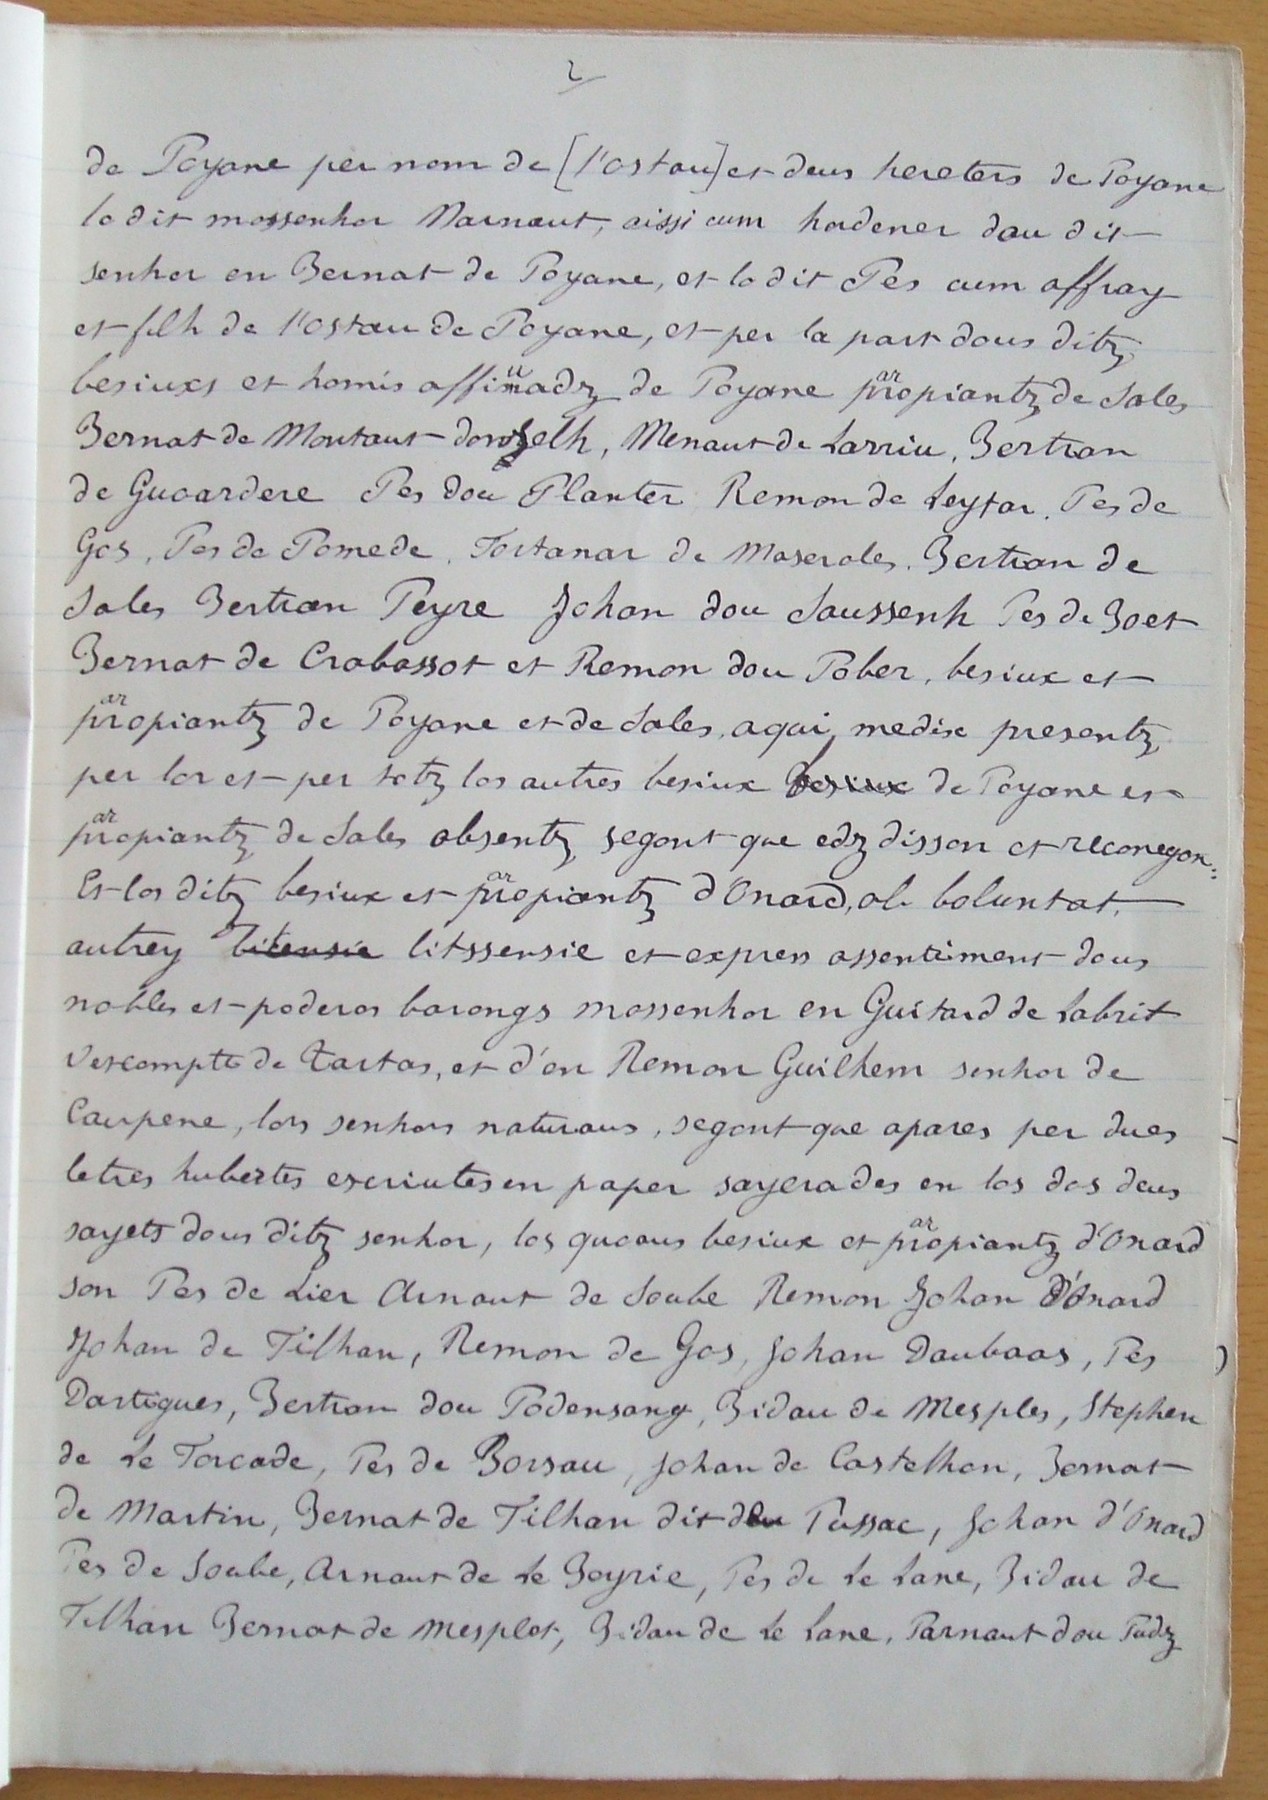 2
de Poyane per nom de [l'ostau] et deus hereters de Poyane
lo dit mossenhor Narnaut, aissi cum hordener dau dit
senhor en Bernat de Poyane, et lo dit Pes cum affray
et filh de l'ostau de Poyane, et per la part dous ditz
besiuxs et homis affiuadz de Poyane parropiantz de Sales
Bernat de Montaut donzelh, Menaut de Larriu, Bertran
de Gucardere Pes dou Planter Remon de Leytar. Pes de
Gos, Pes de Pomede, Fortanar de Maseroles. Bertran de
Sales Bertran Peyre Johan dou Saussenh Pes de Boet
Bernat de Crabassot et Remon dou Pober, besiux et
parropiantz de Poyane et de Sales, aqui medix presentz,
per lor et per totz los autres besiux besiux de Poyane et
parropiantz de Sales absentz, segont que edz disson et reconegon.
Et los ditz besiux et parropiantz d'Onard, ab boluntat,
autrey litensie litssensie et expres assentiment dous
nobles et poderos barongs mossenhor en Guitard de Labrit
Vescompte de Tartas, et d'en Remon Guilhem senhor de
Caupene, lors senhors naturaus, segont que apares per dues
letres hubertes escriutes en paper sayerades en los dos deus
sayets dous ditz senhor, los quoaus besiux et parropiantz d'Onard
son Pes de Lier Arnaut de Soube Remon Johan d'Onard
Johan de Tilhan, Remon de Gos, Johan Daubaas, Pes
Dartigues, Bertran dou Podensang, Bidau de Mesples, Stephen
de Le Forcade, Pes de Borsau, Johan de Castelhon, Bernat
de Martin, Bernat de Tilhan dit deu Pussac, Johan d'Onard
Pes de Soube, Arnaut de Le Beyrie, Pes de Le Lane, Bidau de
Tilhan Bernat de Mesplet, Bidau de Le Lane, Parnaut dou Pudz